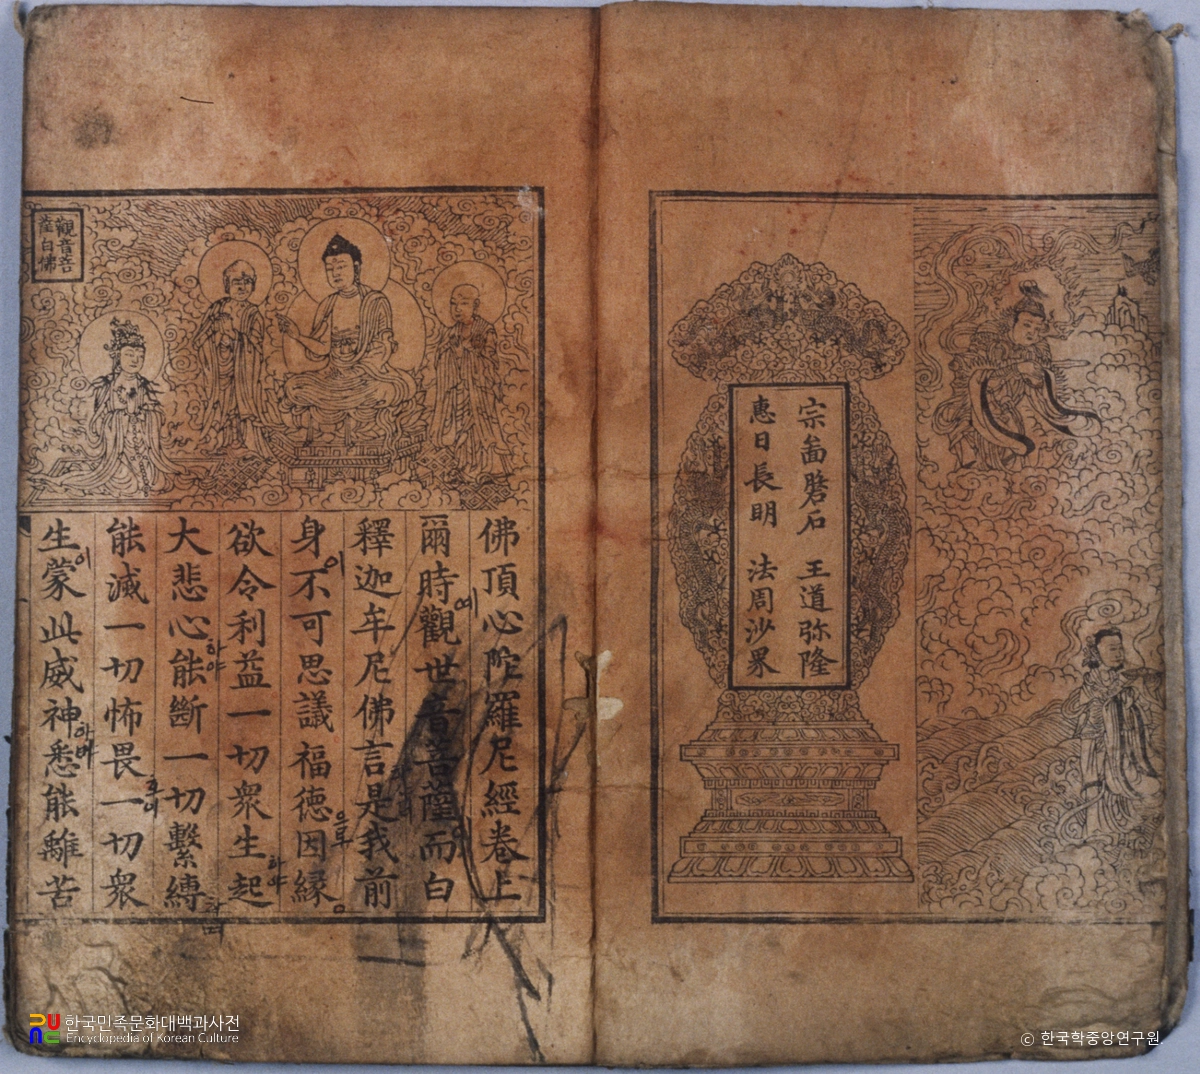 宗啚磐石 王道弥隆
惠日長明 法周沙界
觀音菩
薩白佛
佛頂心陀羅尼經卷上
爾時觀世音菩薩而白
釋迦牟尼佛言是我前
身不可思議福德因緣
欲令利益一切衆生起
大悲心能斷一切繫縛
能滅一切怖畏一切衆
生蒙此威神悉能離苦
에
이
으로
하야
하야
이
하며
한국민족문화대백과사전
Encyclopedia of Korean Culture
© 한국학중앙연구원.